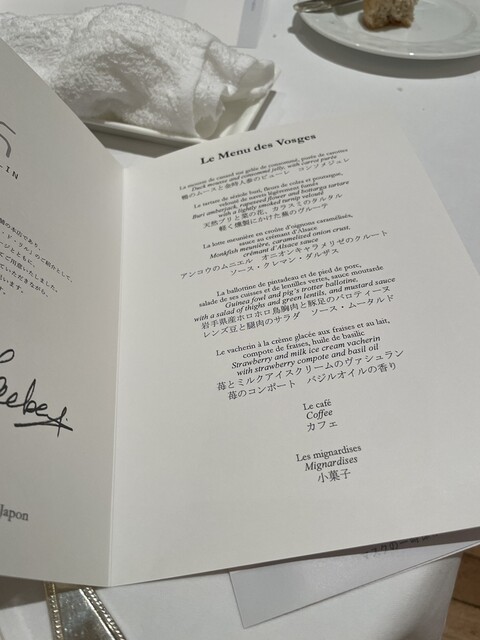 LIN
Japon
Le Menu des Vosges
La mousse de canard en gelée de consommé, purée de carottes
Duck mousse and consommé jelly, with carrot purée
鴨のムースと金時人参のピューレ コンソメジュレ
Le tartare de sériole buri, fleurs de colza et poutargue,
velouté de navets légèrement fumés
Buri amberjack, rapeseed flower and bottarga tartare
with a lightly smoked turnip velouté
天然ブリと菜の花、カラスミのタルタル
軽く燻製にかけた蕪のヴルーテ
La lotte meunière en croûte d'oignons caramélisés,
sauce au crémant d'Alsace
Monkfish meunière, caramelized onion crust,
crémant d'Alsace sauce
アンコウのムニエル オニオンキャラメリゼのクルート
ソース・クレマン・ダルザス
La ballottine de pintadeau et pied de porc,
salade de ses cuisses et de lentilles vertes, sauce moutarde
Guinea fowl and pig's trotter ballotine,
with a salad of thighs and green lentils, and mustard sauce
岩手県産ホロホロ鳥胸肉と豚足のバロティーヌ
レンズ豆と腿肉のサラダ ソース・ムータルド
Le vacherin à la crème glacée aux fraises et au lait,
compote de fraises, huile de basilic
Strawberry and milk ice cream vacherin
with strawberry compote and basil oil
苺とミルクアイスクリームのヴァシュラン
苺のコンポート バジルオイルの香り
Le café
Coffee
カフェ
Les mignardises
Mignardises
小菓子